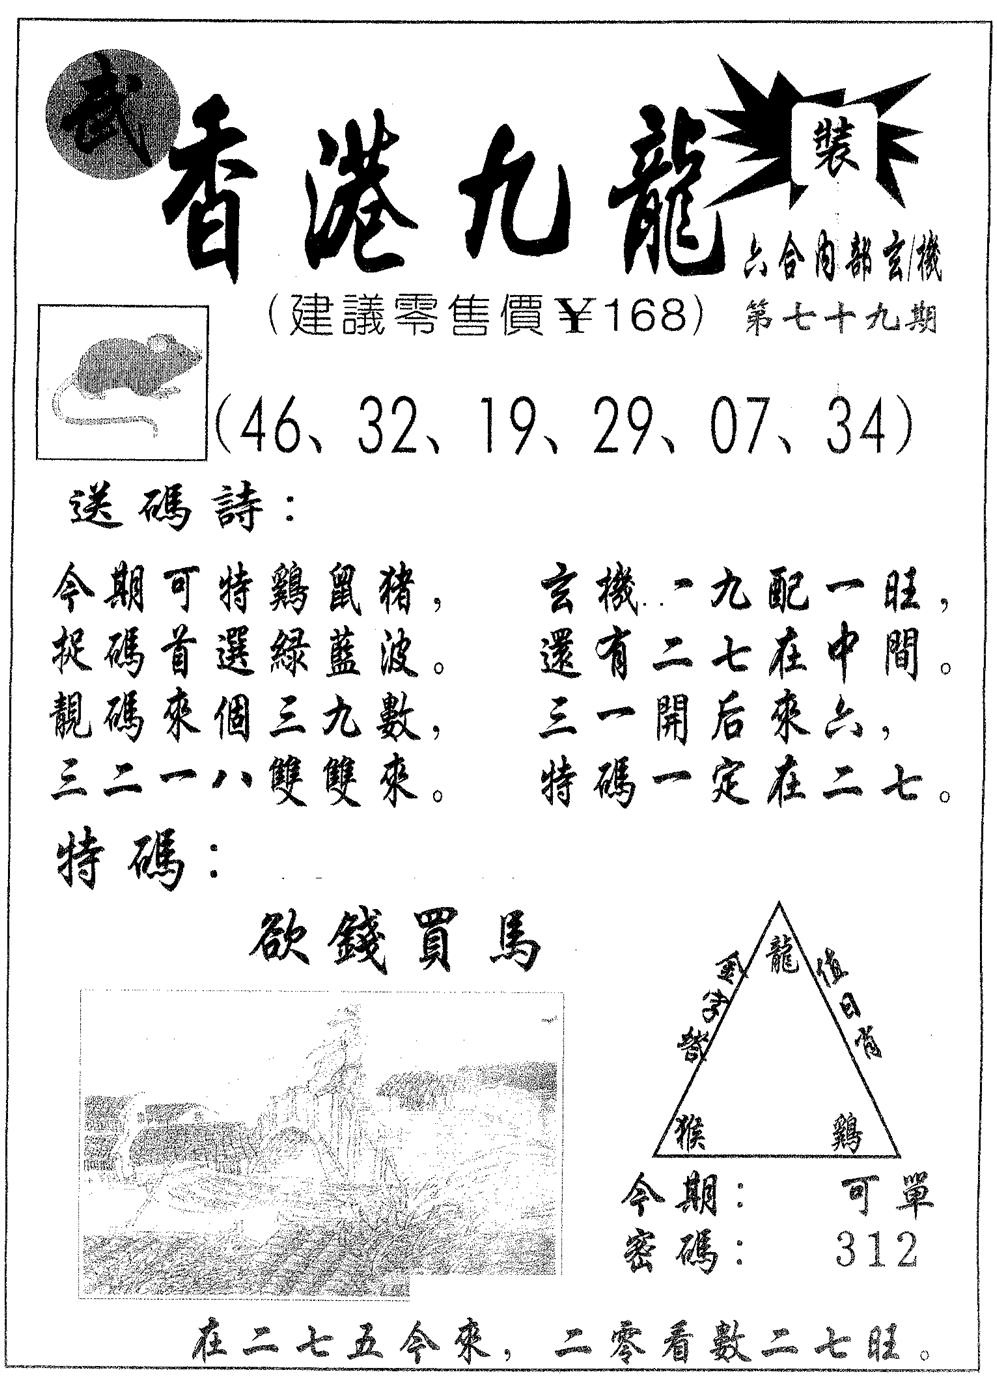 武
香港九龍
裝
六合内部玄機
(建議零售價¥168)
第七十九期
(46、32、19、29、07、34)
送碼詩：
今期可特鷄鼠猪，
捉碼首選緑藍波。
靚碼來個三九數，
三二一八雙雙來。
玄機一九配一旺，
還有二七在中間。
三一開后來六，
特碼一定在二七。
特碼：
欲錢買馬
龍
金字塔
值日肖
猴
鷄
今期： 可單
密碼： 312
在二七五今來，二零看數二七旺。